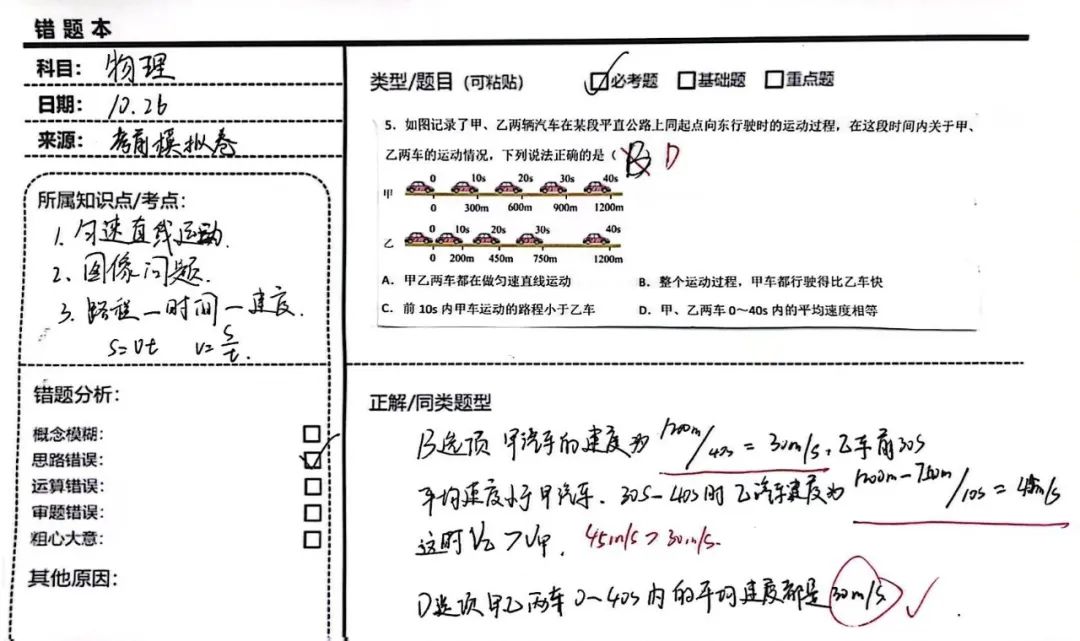 错题本
科目: 物理
日期: 10.26
来源: 考前模拟卷
所属知识点/考点:
1. 匀速直线运动.
2. 图像问题.
3. 路程一时间一速度.
S=vt v=S/t.
错题分析:
概念模糊: □
思路错误: ☑
运算错误: □
审题错误: □
粗心大意: □
其他原因:
类型/题目 (可粘贴) ☑必考题 □基础题 □重点题
5. 如图记录了甲、乙两辆汽车在某段平直公路上同起点向东行驶时的运动过程，在这段时间内关于甲、
乙两车的运动情况，下列说法正确的是（ B D
0 10s 20s 30s 40s
甲
0 300m 600m 900m 1200m
0 10s 20s 30s 40s
乙
0 200m 450m 750m 1200m
A. 甲乙两车都在做匀速直线运动 B. 整个运动过程，甲车都行驶得比乙车快
C. 前 10s 内甲车运动的路程小于乙车 D. 甲、乙两车 0～40s 内的平均速度相等
正解/同类题型
B选项 甲汽车的速度为 1200m/40s = 30m/s, 乙车前30s
平均速度小于甲汽车. 30s-40s时 乙汽车速度为 1200m-750m/10s = 45m/s
这时V乙>V甲. 45m/s>30m/s.
D选项 甲乙两车 0~40s 内的平均速度都是30m/s ✓